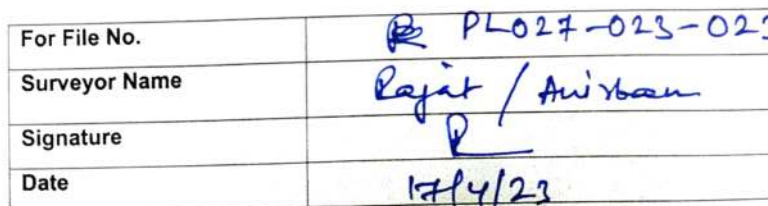 For File No. PL027-023-023
Surveyor Name Rajat / Anirban
Signature
Date 17/4/23